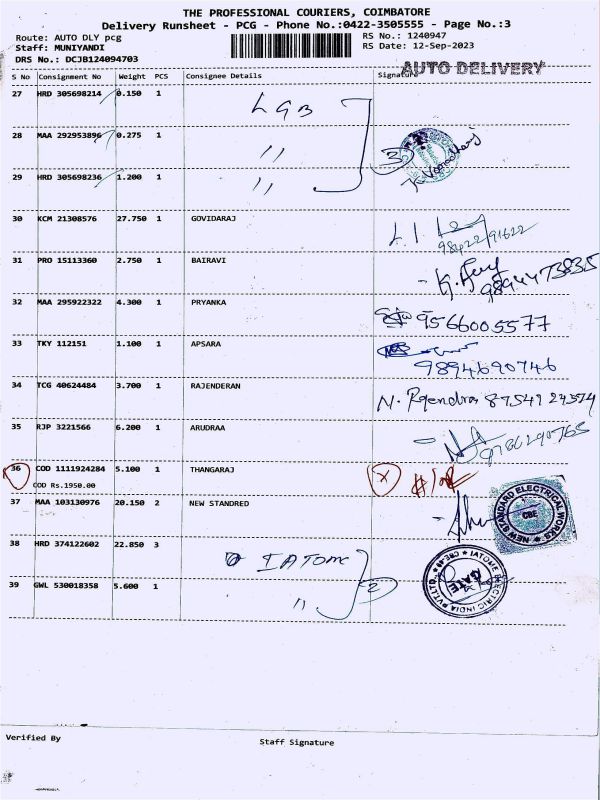 THE PROFESSIONAL COURIERS, COIMBATORE
Delivery Runsheet - PCG - Phone No.:0422-3505555 - Page No.:3
Route: AUTO DLY pcg RS No.: 1240947
Staff: MUNIYANDI RS Date: 12-Sep-2023
DRS No.: DCJB124094703
AUTO DELIVERY
S No Consignment No Weight PCS Consignee Details Signature
27 HRD 305698214 0.150 1 LGB
28 MAA 292953896 0.275 1 "
3
29 HRD 305698236 1.200 1 "
30 KCM 21308576 27.750 1 GOVIDARAJ
98422/91622
31 PRO 15113360 2.750 1 BAIRAVI
9894473835
32 MAA 295922322 4.300 1 PRYANKA
9566005577
33 TKY 112151 1.100 1 APSARA
9894690746
34 TCG 40624484 3.700 1 RAJENDERAN
35 RJP 3221566 6.200 1 ARUDRAA
36 COD 1111924284 5.100 1 THANGARAJ X
COD Rs.1950.00
37 MAA 103130976 20.150 2 NEW STANDRED
NEW STANDARD ELECTRICAL WORKS
CBE
38 HRD 374122602 22.850 3 IATOME
39 GWL 530018358 5.600 1 " 2
IATOME ELECTRIC INDIA PVT.LTD
GATE
Verified By Staff Signature